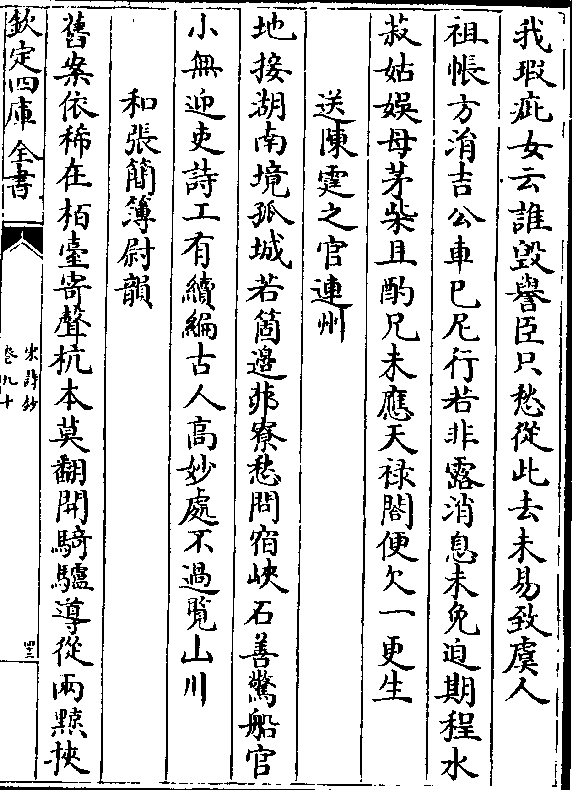 我瑕疵女云誰毀譽臣只愁從此去未易致虞人
祖帳方涓吉公車已尼行若非露消息未免迫期程水
菽姑娛母茅柴且酌兄未應天禄閣便欠一更生
送陳霆之官連州
地接湖南境孤城若箇邉邦寮愁問宿峽石善驚船官
小無迎吏詩工有續編古人髙妙處不過覽山川
和張簡簿尉韻
舊案依稀在柏臺寄聲杭本莫翻開騎驢導從兩黥挾
欽定四庫全書
宋詩鈔
卷九十